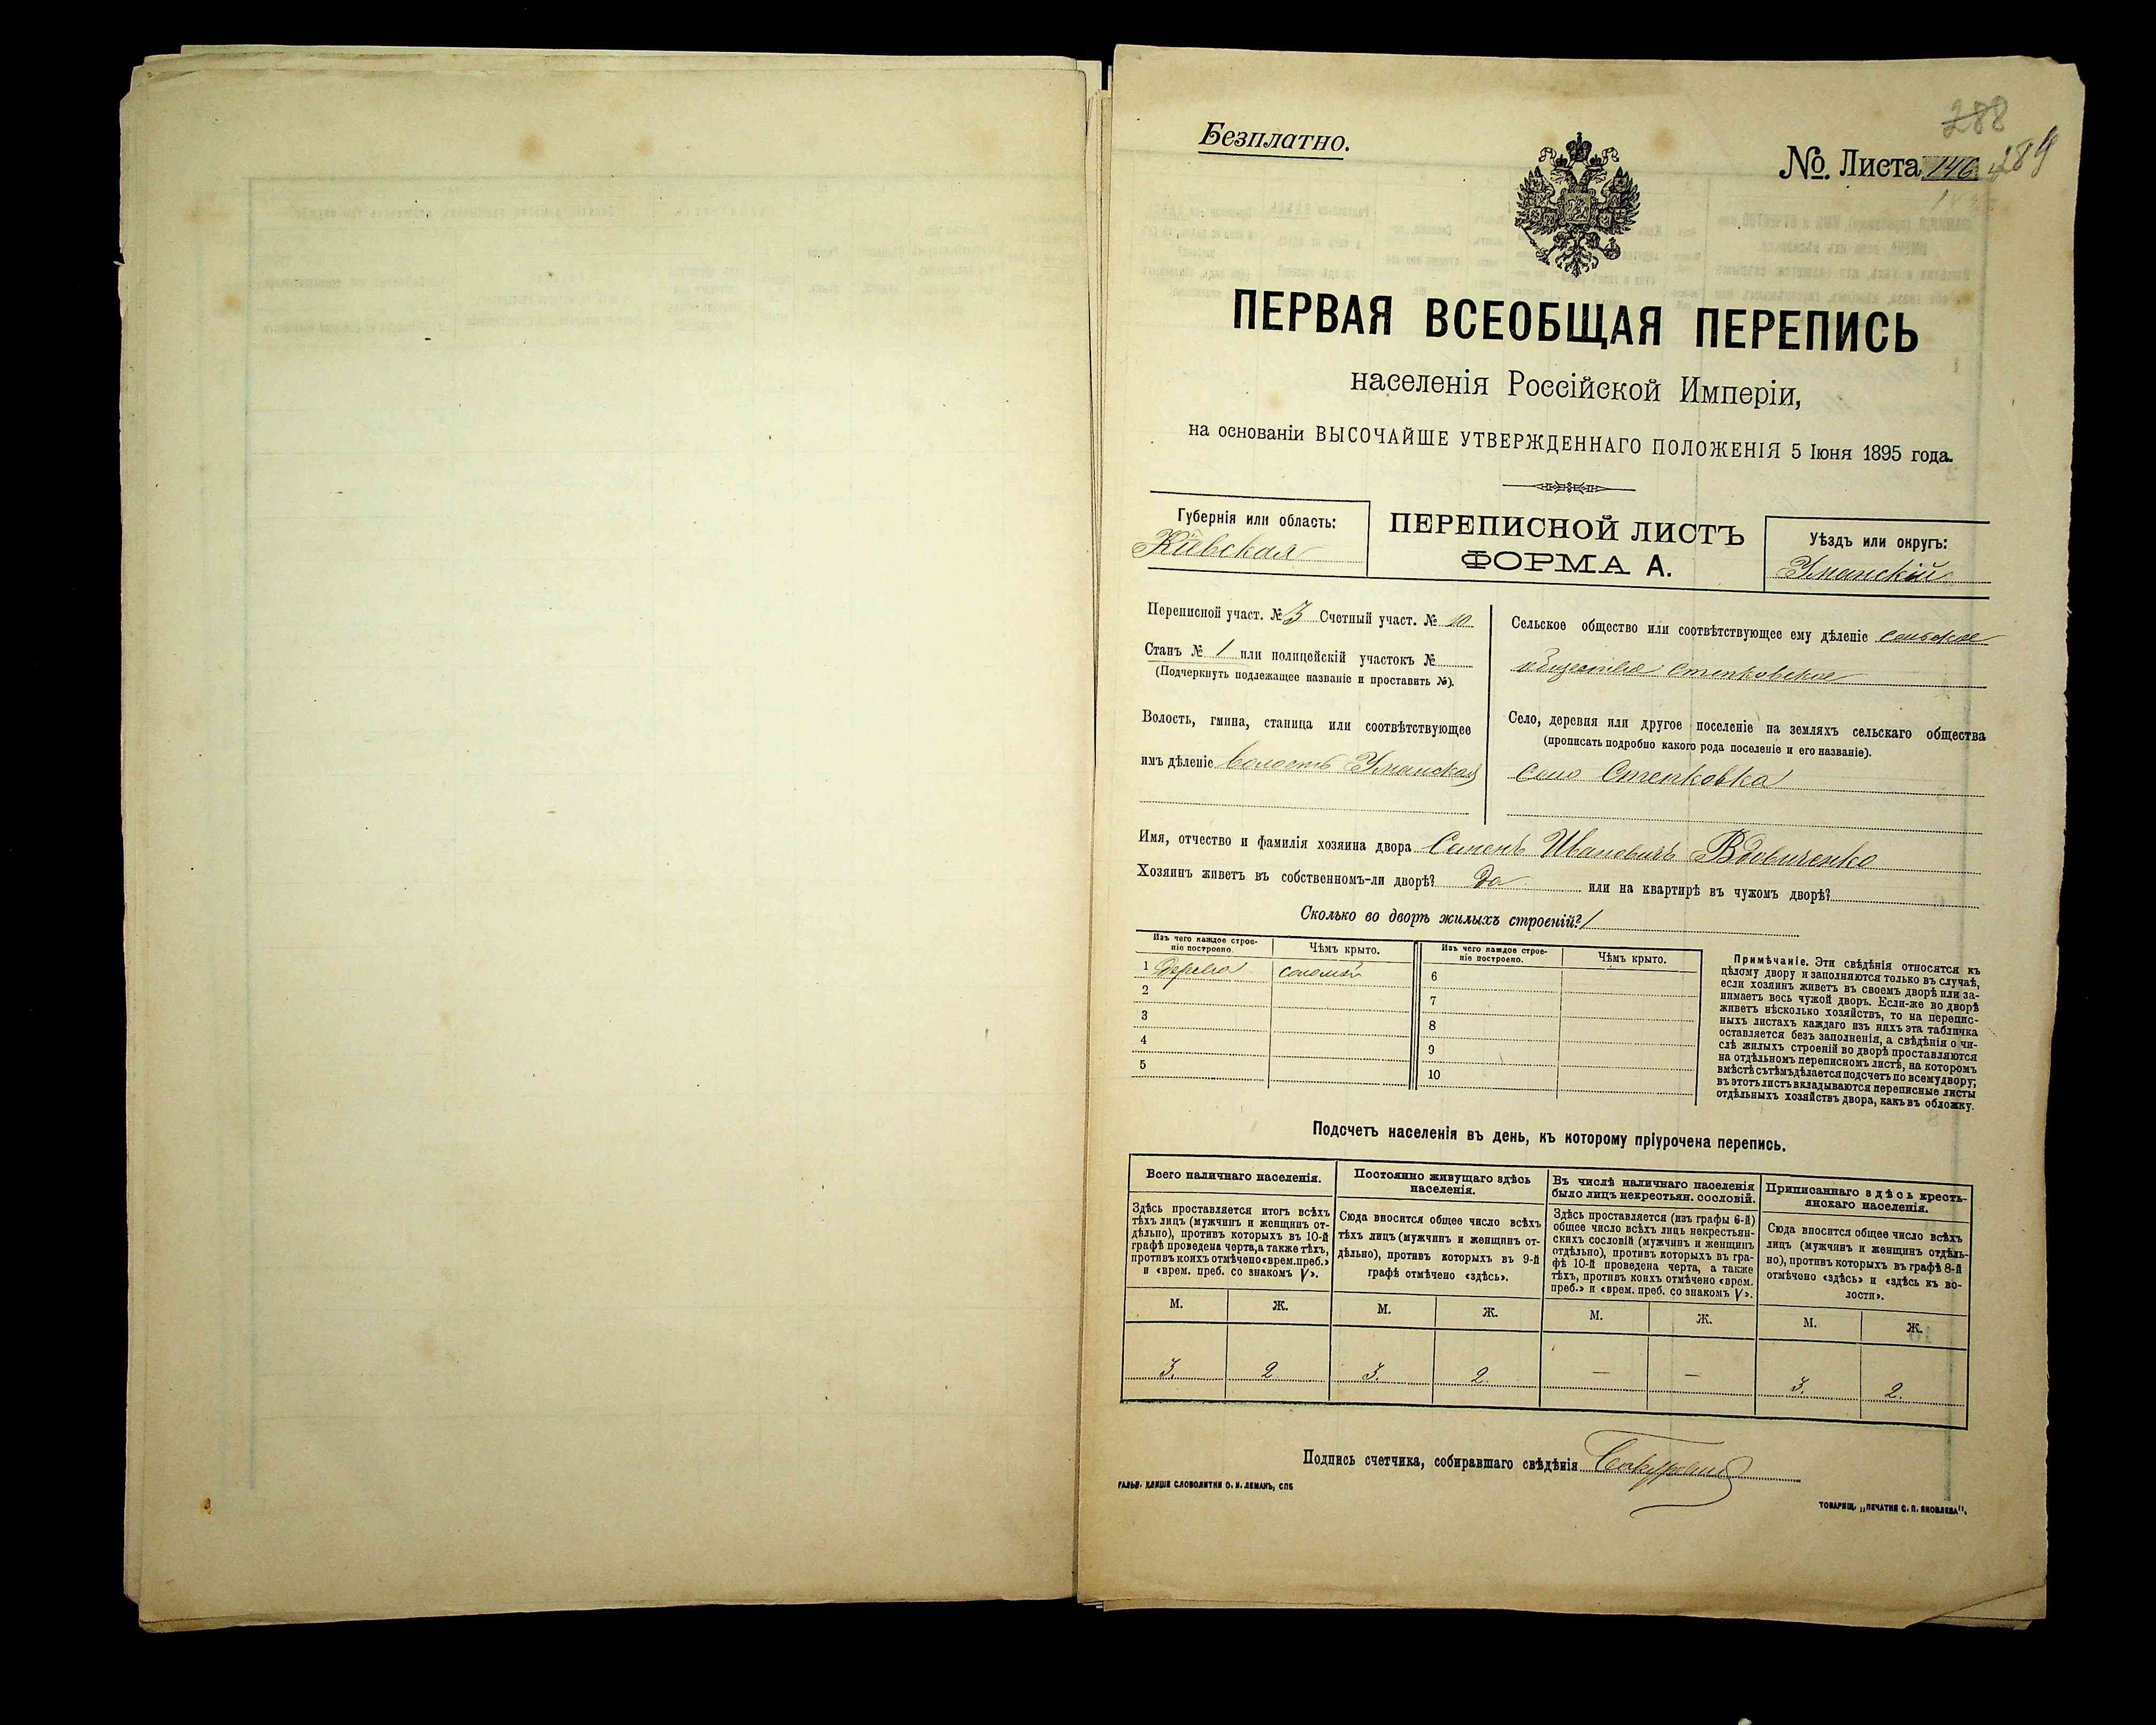 288
Безплатно.
№. Листа 146 289
ПЕРВАЯ ВСЕОБЩАЯ ПЕРЕПИСЬ
населенія Россійской Имперіи,
на основаніи ВЫСОЧАЙШЕ УТВЕРЖДЕННАГО ПОЛОЖЕНІЯ 5 Іюня 1895 года.
Губернія или область:
Кіевская
ПЕРЕПИСНОЙ ЛИСТЪ
ФОРМА А.
Уѣздъ или округъ:
Уманскій
Переписной участ. № 3 Счетный участ. № 10
Станъ № 1 или полицейскій участокъ №
(Подчеркнуть подлежащее названіе и проставить №).
Волость, гмина, станица или соотвѣтствующее
имъ дѣленіе волость Уманская
Сельское общество или соотвѣтствующее ему дѣленіе сельское
общество Степковское
Село, деревня или другое поселеніе на земляхъ сельскаго общества
(прописать подробно какого рода поселеніе и его названіе).
село Степковка
Имя, отчество и фамилія хозяина двора Семенъ Ивановичъ Вдовиченко
Хозяинъ живетъ въ собственномъ-ли дворѣ? Да или на квартирѣ въ чужомъ дворѣ?
Сколько во дворѣ жилыхъ строеній? 1
Изъ чего каждое строе-
ніе построено.
Чѣмъ крыто.
Изъ чего каждое строе-
ніе построено.
Чѣмъ крыто.
1 Дерева соломой
2
3
4
5
6
7
8
9
10
Примѣчаніе. Эти свѣдѣнія относятся къ
цѣлому двору и заполняются только въ случаѣ,
если хозяинъ живетъ въ своемъ дворѣ или за-
нимаетъ весь чужой дворъ. Если-же во дворѣ
живетъ нѣсколько хозяйствъ, то на перепис-
ныхъ листахъ каждаго изъ нихъ эта табличка
оставляется безъ заполненія, а свѣдѣнія о чи-
слѣ жилыхъ строеній во дворѣ проставляются
на отдѣльномъ переписномъ листѣ, на которомъ
вмѣстѣ съ тѣмъ дѣлается подсчетъ по всему двору;
въ этотъ листъ вкладываются переписные листы
отдѣльныхъ хозяйствъ двора, какъ въ обложку.
Подсчетъ населенія въ день, къ которому пріурочена перепись.
Всего наличнаго населенія.
Здѣсь проставляется итогъ всѣхъ
тѣхъ лицъ (мужчинъ и женщинъ от-
дѣльно), противъ которыхъ въ 10-й
графѣ проведена черта, а также тѣхъ,
противъ коихъ отмѣчено «врем. преб.»
и «врем. преб. со знакомъ V».
Постоянно живущаго здѣсь
населенія.
Сюда вносится общее число всѣхъ
тѣхъ лицъ (мужчинъ и женщинъ от-
дѣльно), противъ которыхъ въ 9-й
графѣ отмѣчено «здѣсь».
Въ числѣ наличнаго населенія
было лицъ некрестьян. сословій.
Здѣсь проставляется (изъ графы 6-й)
общее число всѣхъ лицъ некрестьян-
скихъ сословій (мужчинъ и женщинъ
отдѣльно), противъ которыхъ въ гра-
фѣ 10-й проведена черта, а также
тѣхъ, противъ коихъ отмѣчено «врем.
преб.» и «врем. преб. со знакомъ V».
Приписаннаго здѣсь кресть-
янскаго населенія.
Сюда вносится общее число всѣхъ
лицъ (мужчинъ и женщинъ отдѣль-
но), противъ которыхъ въ графѣ 8-й
отмѣчено «здѣсь» и «здѣсь къ во-
лости».
М. Ж. М. Ж. М. Ж. М. Ж.
3. 2 3. 2. — — 3. 2.
Подпись счетчика, собиравшаго свѣдѣнія
ГАЛЬВ. КЛИШЕ СЛОВОЛИТНИ О. И. ЛЕМАНЪ, СПБ
ТОВАРИЩ. „ПЕЧАТНЯ С. П. ЯКОВЛЕВА".